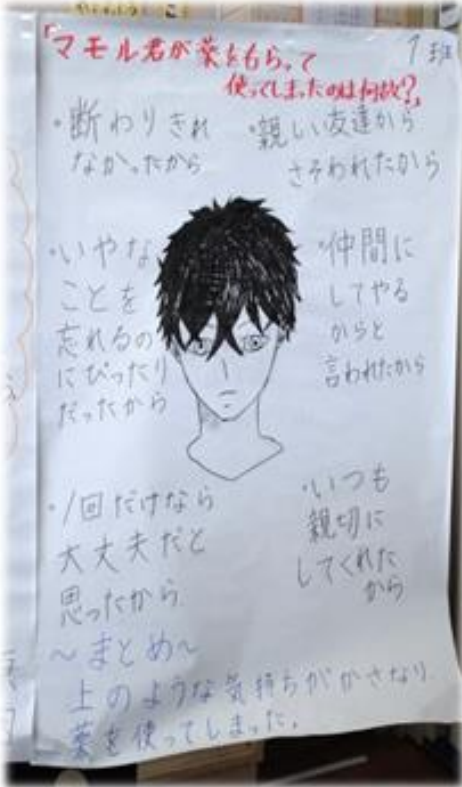 「マモル君が薬をもらって
使ってしまったのは何故?」
1班
・断わりきれ
なかったから
・親しい友達から
さそわれたから
・いやな
ことを
忘れるの
にぴったり
だったから
・仲間に
してやる
からと
言われたから
・1回だけなら
大丈夫だと
思ったから
・いつも
親切に
してくれた
から
〜まとめ〜
上のような気持ちがかさなり
薬を使ってしまった。